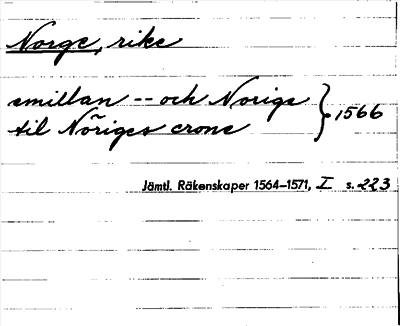 Norge, rike
emillan -- och Norige
til Nõriges crone } 1566
Jämtl. Räkenskaper 1564–1571, I s. 223